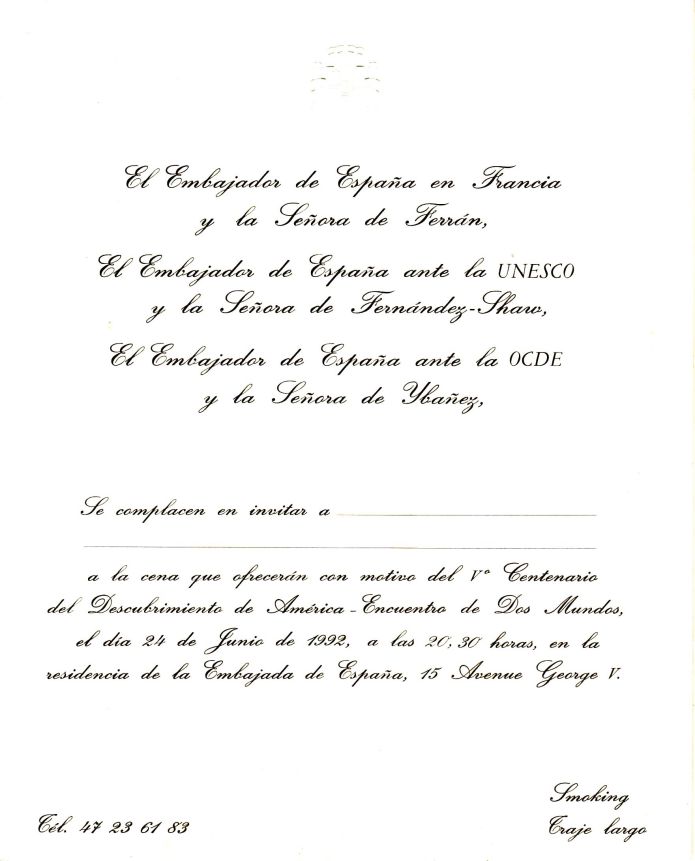 El Embajador de España en Francia
y la Señora de Ferrán,
El Embajador de España ante la UNESCO
y la Señora de Fernández-Shaw,
El Embajador de España ante la OCDE
y la Señora de Ybañez,
Se complacen en invitar a
a la cena que ofrecerán con motivo del Vº Centenario
del Descubrimiento de América - Encuentro de Dos Mundos,
el día 24 de Junio de 1992, a las 20,30 horas, en la
residencia de la Embajada de España, 15 Avenue George V.
Smoking
Tél. 47 23 61 83 Traje largo